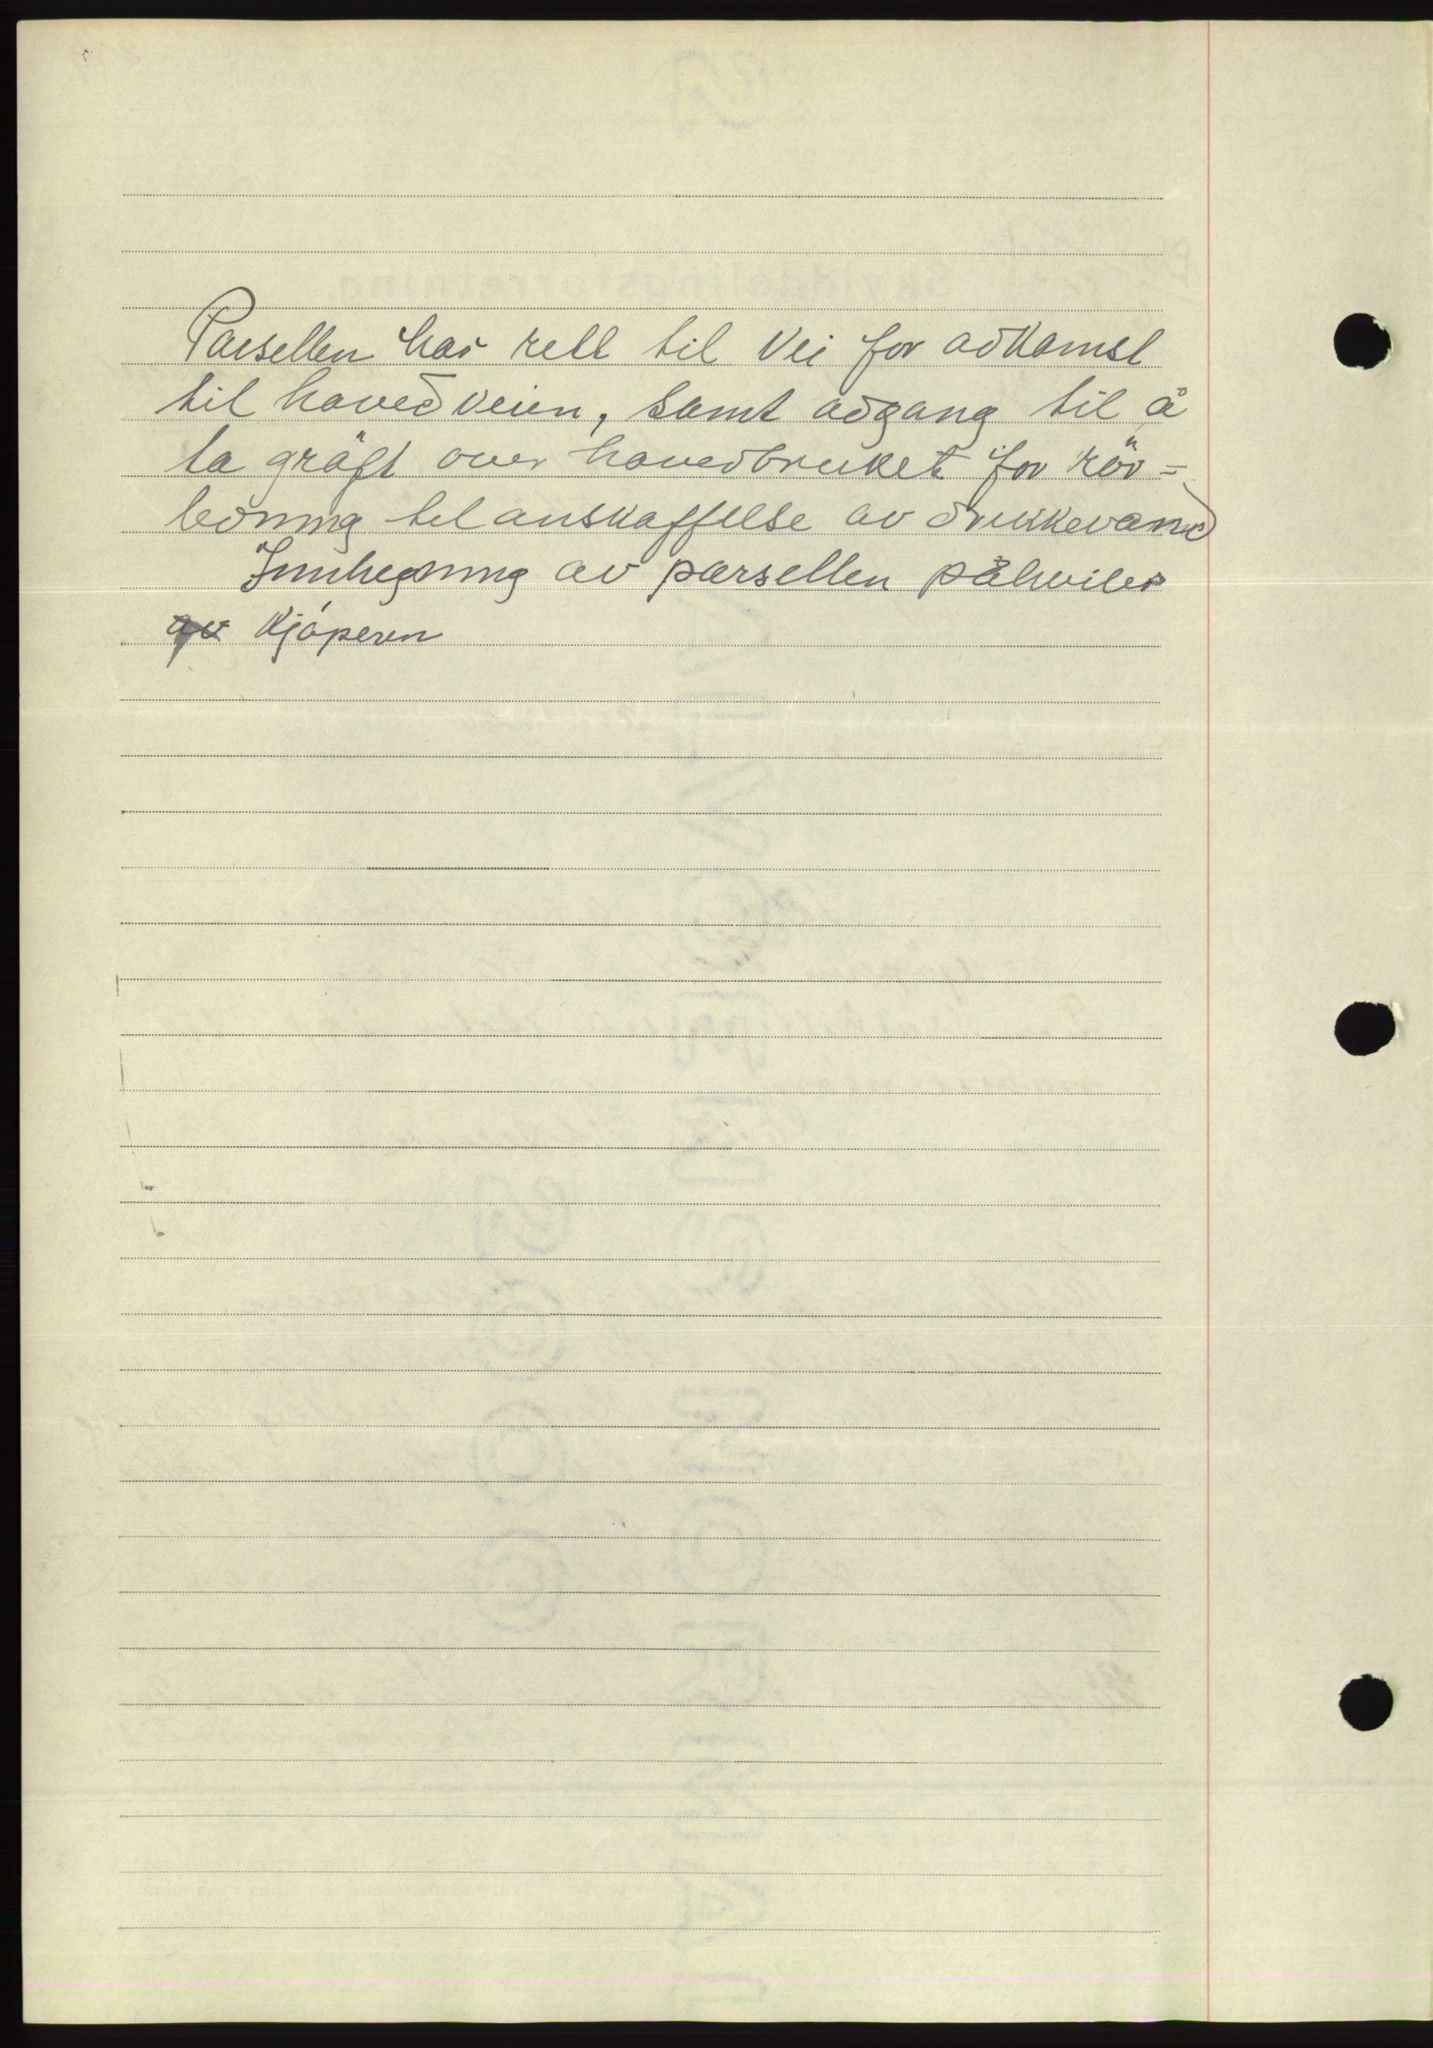 Parsellen har rett til Vei for adkomst
til hovedveien, samt adgang til å
ta gröft over hovedbruket for rör=
ledning til anskaffelse av drikkevand
Innhegning av parsellen påhviler
av Kjöperen